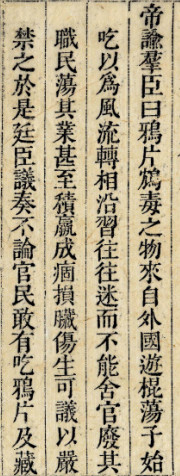 帝諭羣臣曰鴉片鴆毒之物來自外國遊棍蕩子始
吃以爲風流轉相沿習往往迷而不能舍官廢其
職民蕩其業甚至積羸成痼損臟傷生可議以嚴
禁之於是廷臣議奏不論官民敢有吃鴉片及藏